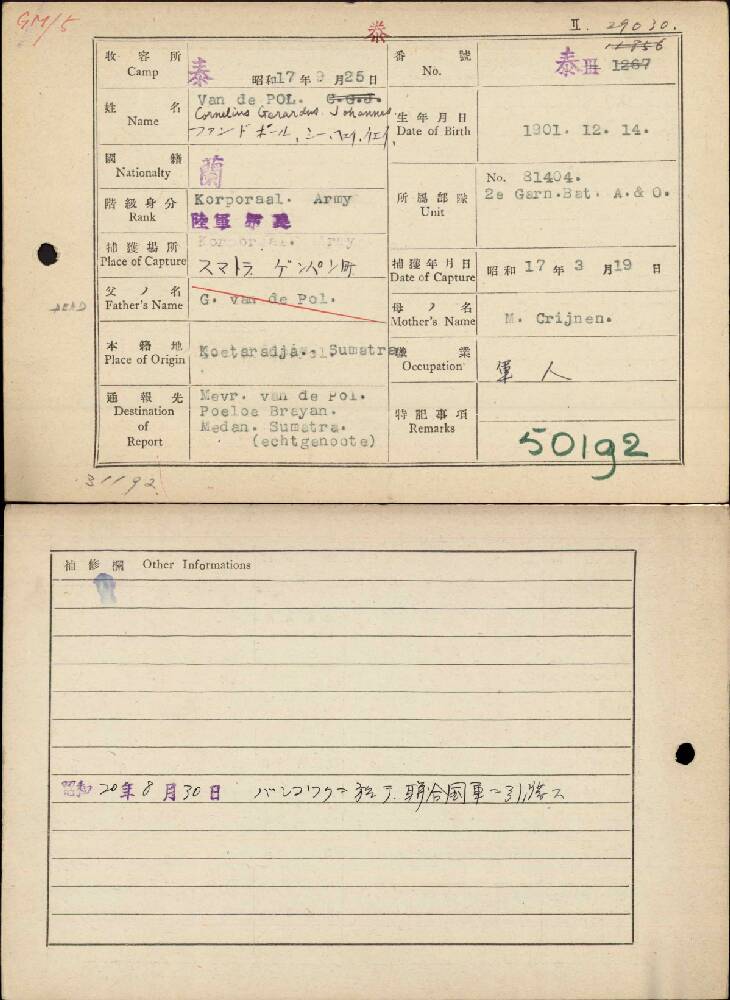 GM/5
泰
II. 29030.
收容所 Camp 泰 昭和17年9月25日
番號 No. 泰III 1267
姓名 Name Van de POL. C.G.J.
Cornelius Gerardus Johannes
生年月日 Date of Birth 1901. 12. 14.
國籍 Nationalty 蘭
階級身分 Rank Korporaal. Army
陸軍
所屬部隊 Unit No. 81404.
2e Garn.Bat. A.& O.
捕獲場所 Place of Capture スマトラ ゲンペン町
捕獲年月日 Date of Capture 昭和 17 年 3 月 19 日
父ノ名 Father's Name G. van de Pol.
母ノ名 Mother's Name M. Crijnen.
DEAD
本籍地 Place of Origin Koetaradja. Sumatra
職業 Occupation 軍人
通報先 Destination of Report Mevr. van de Pol.
Poeloe Brayan.
Medan. Sumatra.
(echtgenoote)
特記事項 Remarks
50192
31192
補修欄 Other Informations
昭和20年8月30日 聯合国軍ニ引渡ス